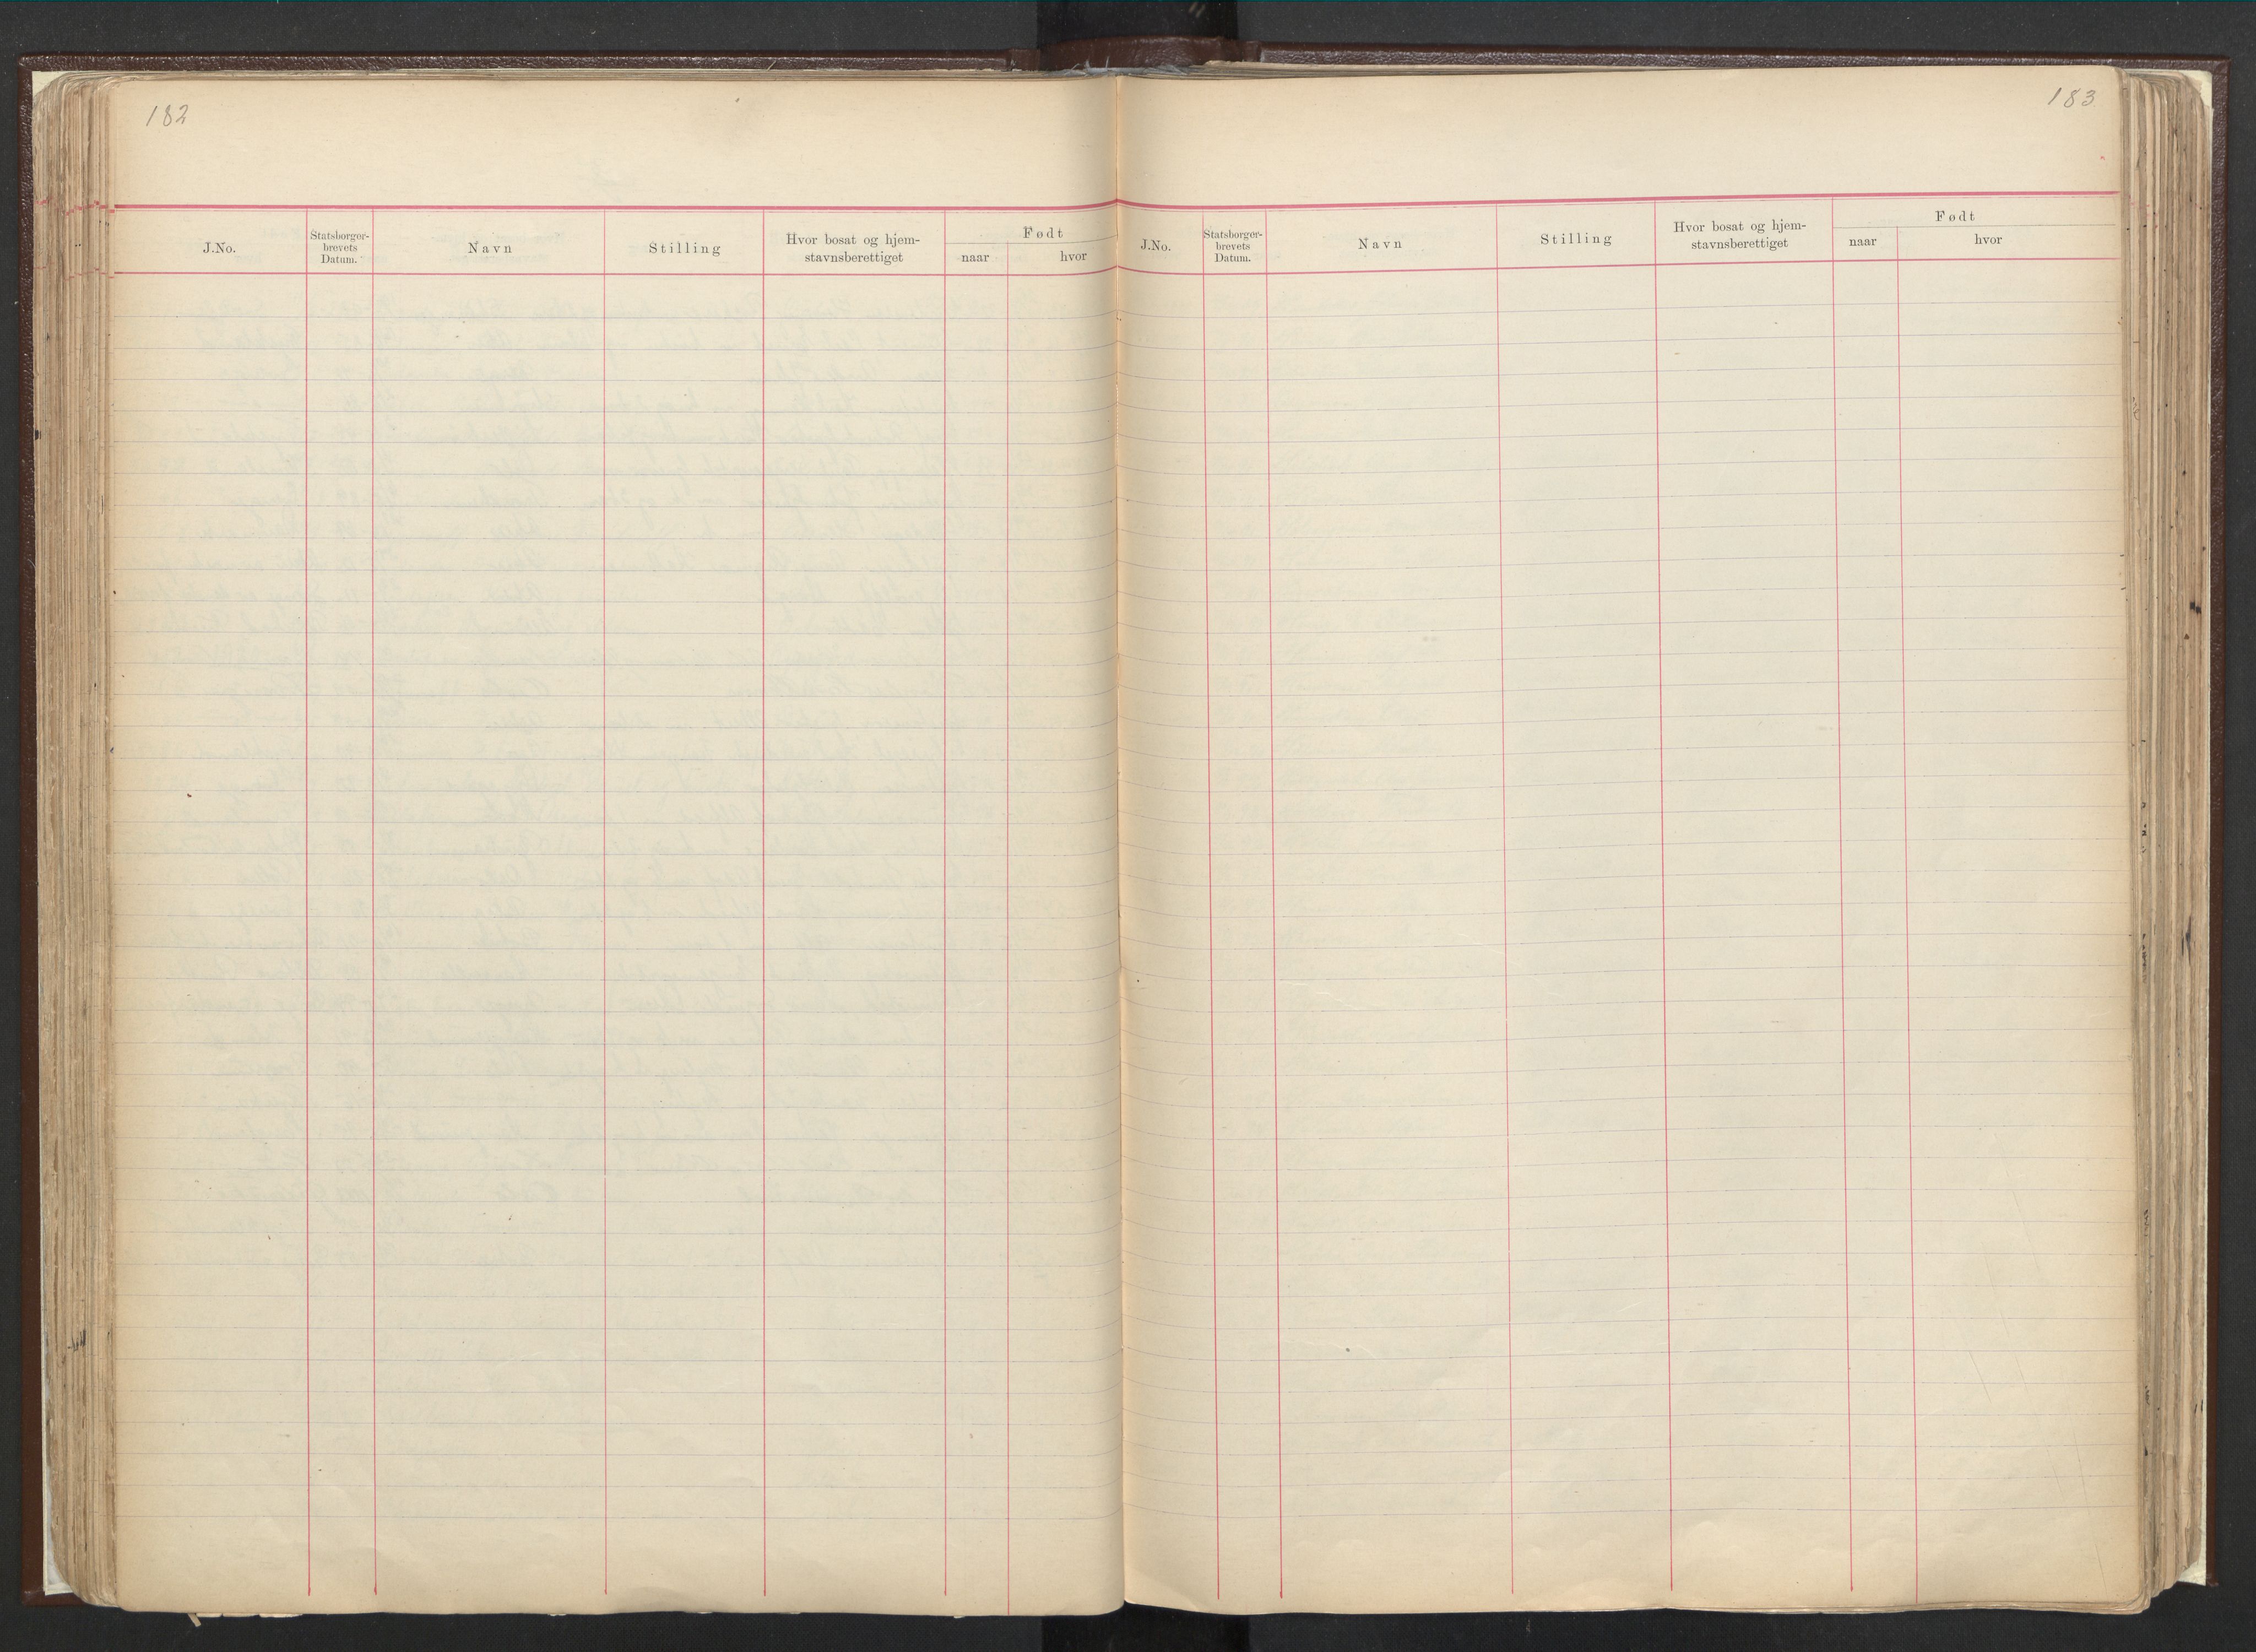 182
J.No.
Statsborger-
brevets
Datum.
Navn
Stilling
Hvor bosat og hjem-
stavnsberettiget
Født
naar
hvor
183
J.No.
Statsborger-
brevets
Datum.
Navn
Stilling
Hvor bosat og hjem-
stavnsberettiget
Født
naar
hvor